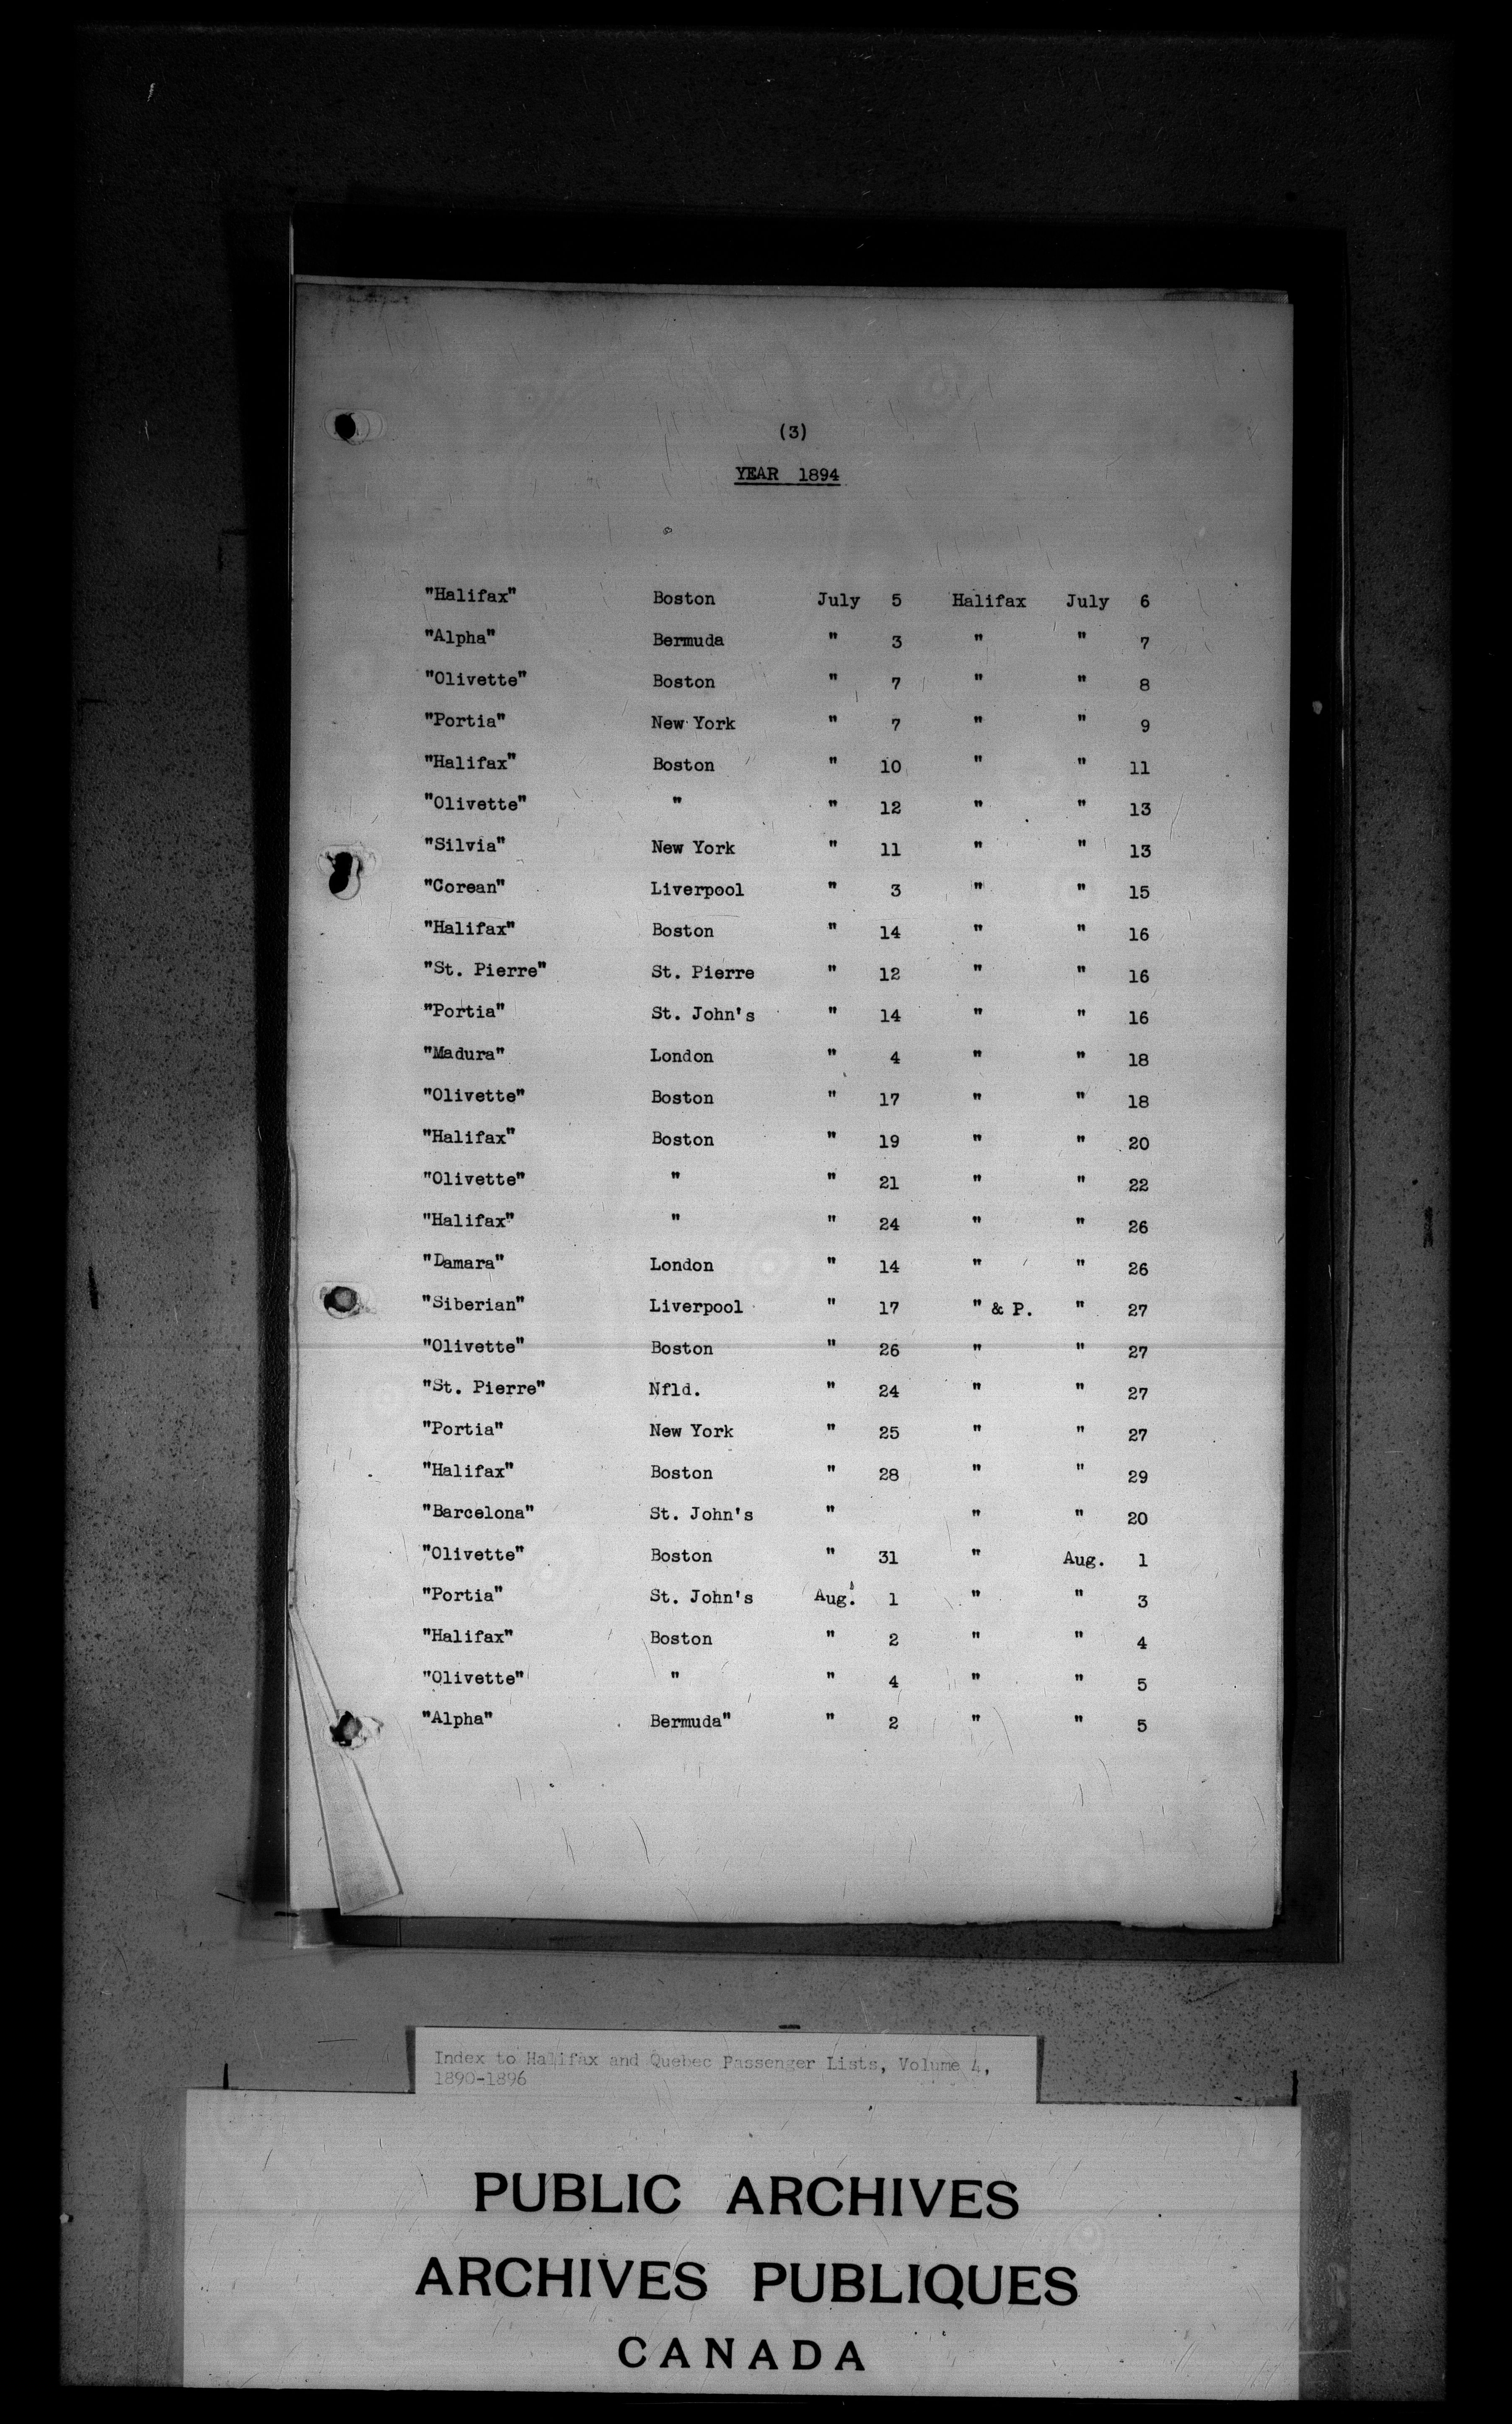 (3)
YEAR 1894
"Halifax" Boston July 5 Halifax July 6
"Alpha" Bermuda " 3 " " 7
"Olivette" Boston " 7 " " 8
"Portia" New York " 7 " " 9
"Halifax" Boston " 10 " " 11
"Olivette" " " 12 " " 13
"Silvia" New York " 11 " " 13
"Corean" Liverpool " 3 " " 15
"Halifax" Boston " 14 " " 16
"St. Pierre" St. Pierre " 12 " " 16
"Portia" St. John's " 14 " " 16
"Madura" London " 4 " " 18
"Olivette" Boston " 17 " " 18
"Halifax" Boston " 19 " " 20
"Olivette" " " 21 " " 22
"Halifax" " " 24 " " 26
"Damara" London " 14 " " 26
"Siberian" Liverpool " 17 " & P. " 27
"Olivette" Boston " 26 " " 27
"St. Pierre" Nfld. " 24 " " 27
"Portia" New York " 25 " " 27
"Halifax" Boston " 28 " " 29
"Barcelona" St. John's " " " 20
"Olivette" Boston " 31 " Aug. 1
"Portia" St. John's Aug. 1 " " 3
"Halifax" Boston " 2 " " 4
"Olivette" " " 4 " " 5
"Alpha" Bermuda" " 2 " " 5
Index to Halifax and Quebec Passenger Lists, Volume 4,
1890-1896
PUBLIC ARCHIVES
ARCHIVES PUBLIQUES
CANADA